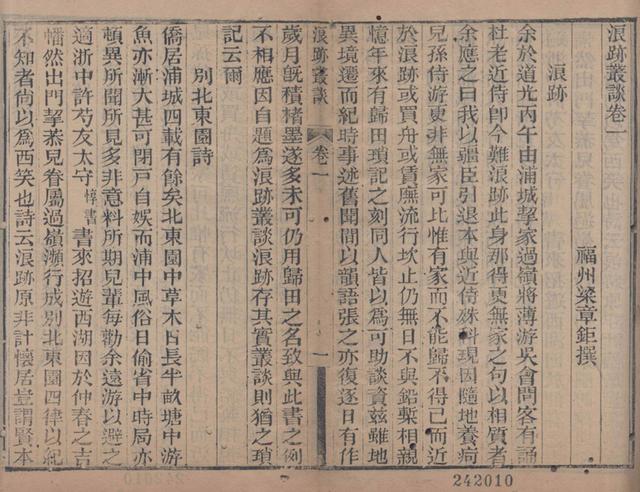 浪跡叢談卷一
福州梁章鉅撰
浪跡
余於道光丙午由浦城挈家過嶺將薄游吳會問客有誦
杜老近侍卽今難浪跡此身那得更無家之句以相質者
余應之曰我以疆臣引退本與近侍殊科現因隨地養疴
兒孫侍游更非無家可比惟有家而不能歸不得已而近
於浪跡或買舟或賃廡流行坎止仍無日不與鉛槧相親
憶年來有歸田瑣記之刻同人皆以爲可助談資茲雖地
異境遷而紀時事述舊聞間以韻語張之亦復逐日有作
浪跡叢談
卷一
一
歲月旣積楮墨遂多未可仍用歸田之名致與此書之例
不相應因自題爲浪跡叢談浪跡存其實叢談則猶之瑣
記云爾
別北東園詩
僑居浦城四載有餘矣北東園中草木日長半畝塘中游
魚亦漸大甚可閉戸自娛而浦中風俗日偷省中時局亦
頓異所聞所見多非意料所期兒輩每勸余遠游以避之
適浙中許芍友太守 惇書 書來招遊西湖因於仲春之吉
幡然出門挈恭兒眷屬過嶺瀕行成別北東園四律以紀
不知者尙以爲西笑也詩云浪跡原非計懷居豈謂賢本
242010